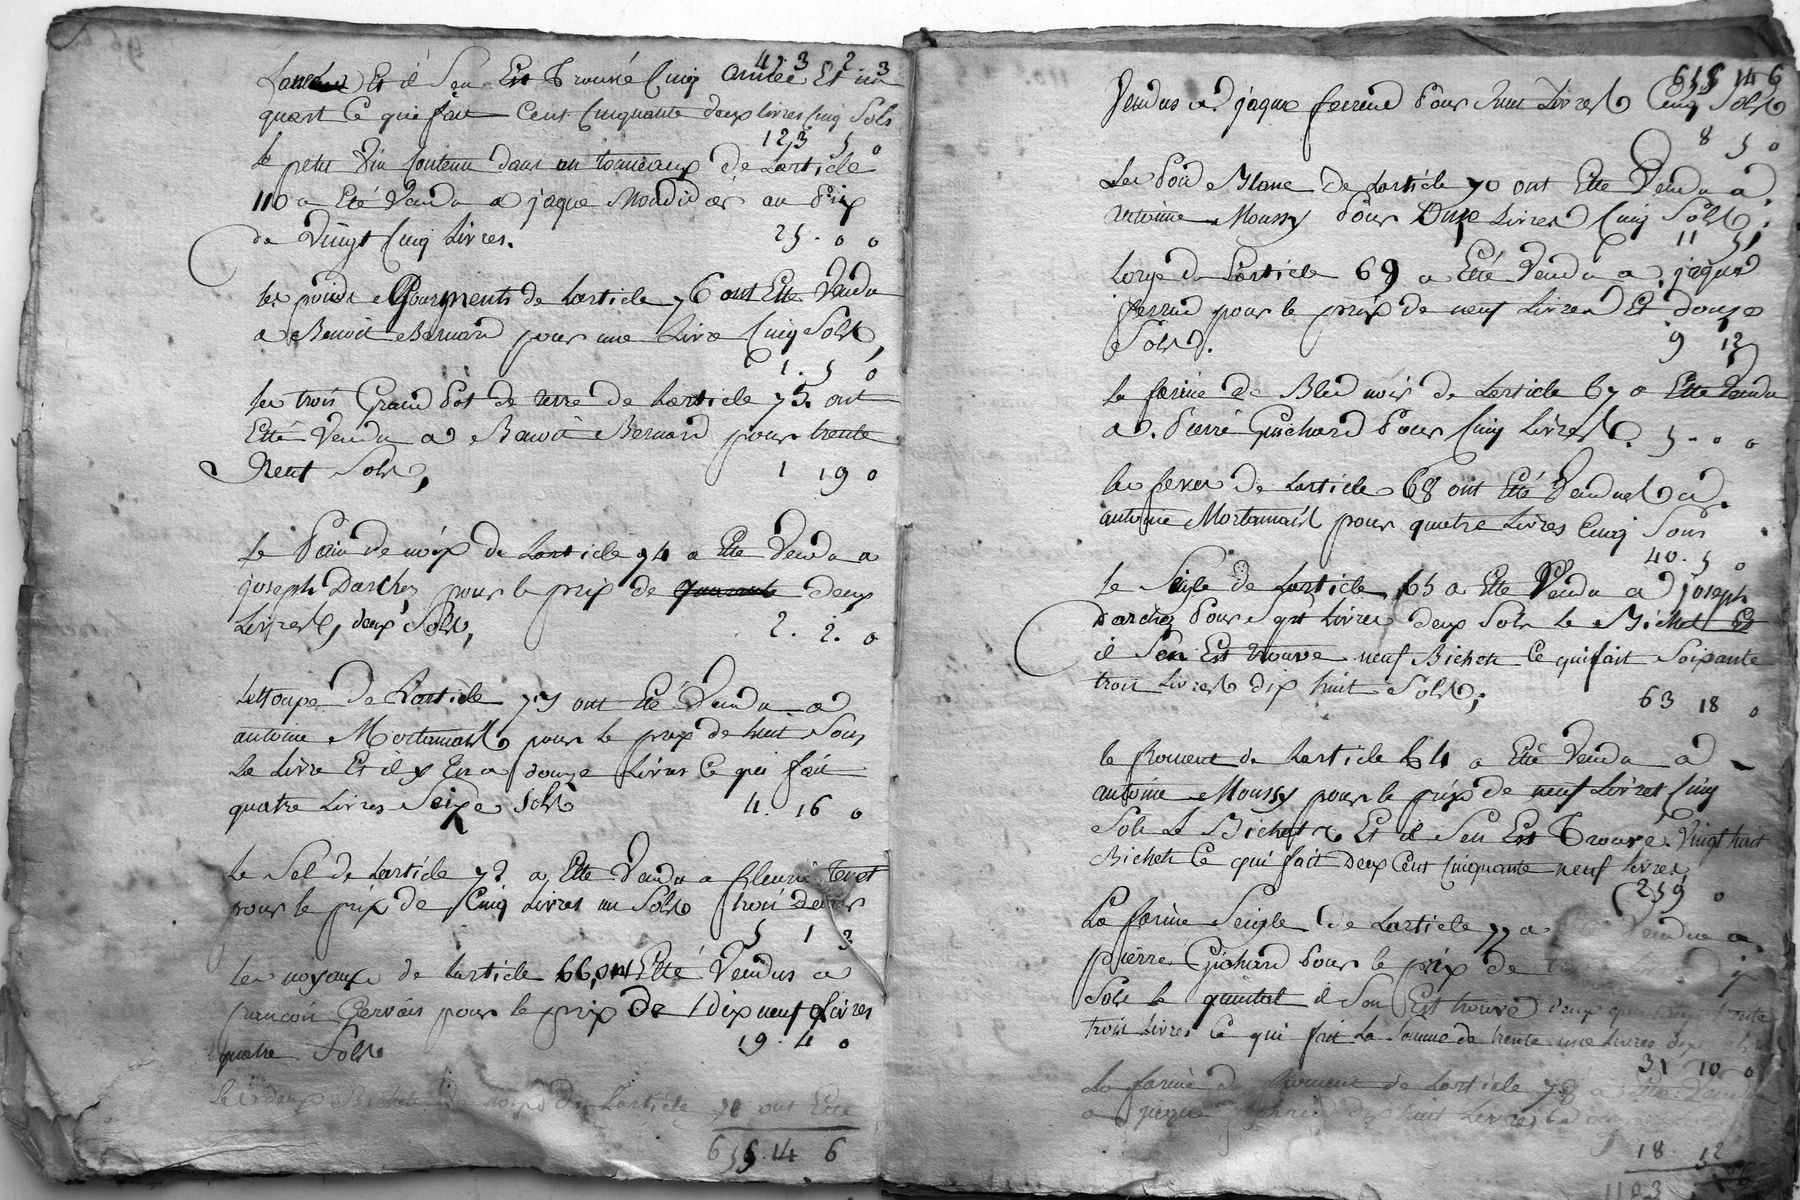 473 2 3
L'année Et il s'en Est Trouvé Cinq année Et un
quart Ce qui fait Cent Cinquante deux livres Cinq Sols
123 5 0
le petit Vin Contenu dans un tonneaux de Larticle
110 a Eté Vendu a jaque Mondider au prix
de Vingt Cinq Livres.
25 . 0 0
les poids de Larticle 76 ont Etté Vendu
a Benoit Bernard pour une Livre Cinq Sols,
1 . 5 0
les trois Grand Pot de terre de Larticle 75. ont
Etté Vendu a Benoit Bernard pour trente
Neuf Sols,
1 19 0
le Pain de noix de Larticle 74 a Eté Vendu a
joseph Darchez pour le prix de deux
Livres, deux Sols,
2 . 2 . 0
Lettoupe de Larticle 75 ont Eté Vendu a
antoine Mortamais pour le prix de huit Sous
La Livre Et il y En a douze Livres Ce qui fait
quatre Livres Seize Sols
4 . 16 0
le Sel de Larticle 72 a Etté Vendu a fleuri
pour le prix de Cinq Livres un Sols trois denier
5 1 3
les noyaux de larticle 66 ont Etté Vendus a
francois Gervais pour le prix de dix neuf Livres
quatre Sols
19 . 4 0
les deux Bichets de noix de Larticle 71 ont Etté
655 . 14 6
655 14 6
Vendus a jaque ferrend pour huit Livres Cinq Sols
8 5 0
Les Poid Blanc de Larticle 70 ont Etté Vendu a
antoine Moussy pour Onze Livres Cinq Sols.
11 5
Lorge de Larticle 69 a Eté Vendu a jaque
ferrend pour le prix de neuf Livres Et douze
Sols.
9 12
la farine de Bled noir de Larticle 67 a Etté Vendu
a Pierre Guichard pour Cinq Livres.
5 . 0 0
les feves de Larticle 68 ont Eté Vendues a
antoine Mortamais pour quatre Livres Cinq Sous
40 . 5 0
le Seigle de Larticle 65 a Etté Vendu a joseph
Darchez pour Sept Livres deux Sols le Bichet Et
il s'en Est trouve neuf Bichets Ce qui fait Soixante
trois Livres dix huit Sols;
63 18 0
le froment de Larticle 64 a Eté Vendu a
antoine Moussy pour le prix de neuf Livres Cinq
Sols Le Bichets Et il Sen Est Trouvé. Vingt huit
Bichets Ce qui fait Deux Cent Cinquante neuf livres
259 0
La farine Seigle de Larticle 77 a Vendue a
pierre Guichard pour le prix de
Sols le quintal il Sen Est trouvé deux
trois livres Ce qui fait La Somme de trente une livres dix
31 10 0
La farine de froment de Larticle 78 a Etté Vendu
a jaque dix huit Livres
18 12
1103 6